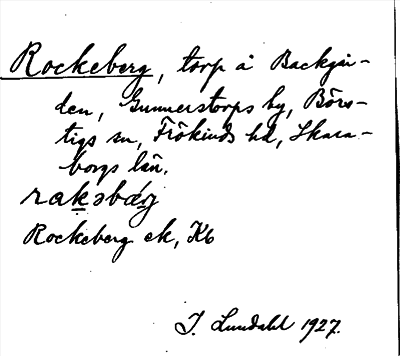 Rockeberg, torp å Backgår-
den, Gunnerstorps by, Börs-
tigs sn, Frökinds hd, Skara-
borgs län.
rakəbærj
Rockeberg ek, Kb
J. Lundahl 1927.